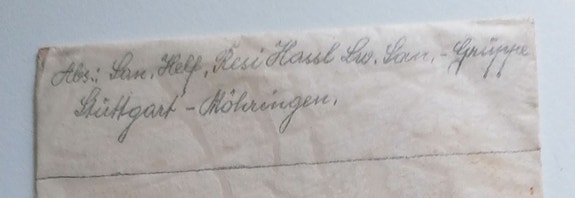 Abs.: San. Helf. Resi Hassl Lw. San.-Gruppe
Stuttgart-Möhringen.